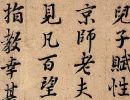 兒子賦性
京師老夫
見凡百望
指教幸甚